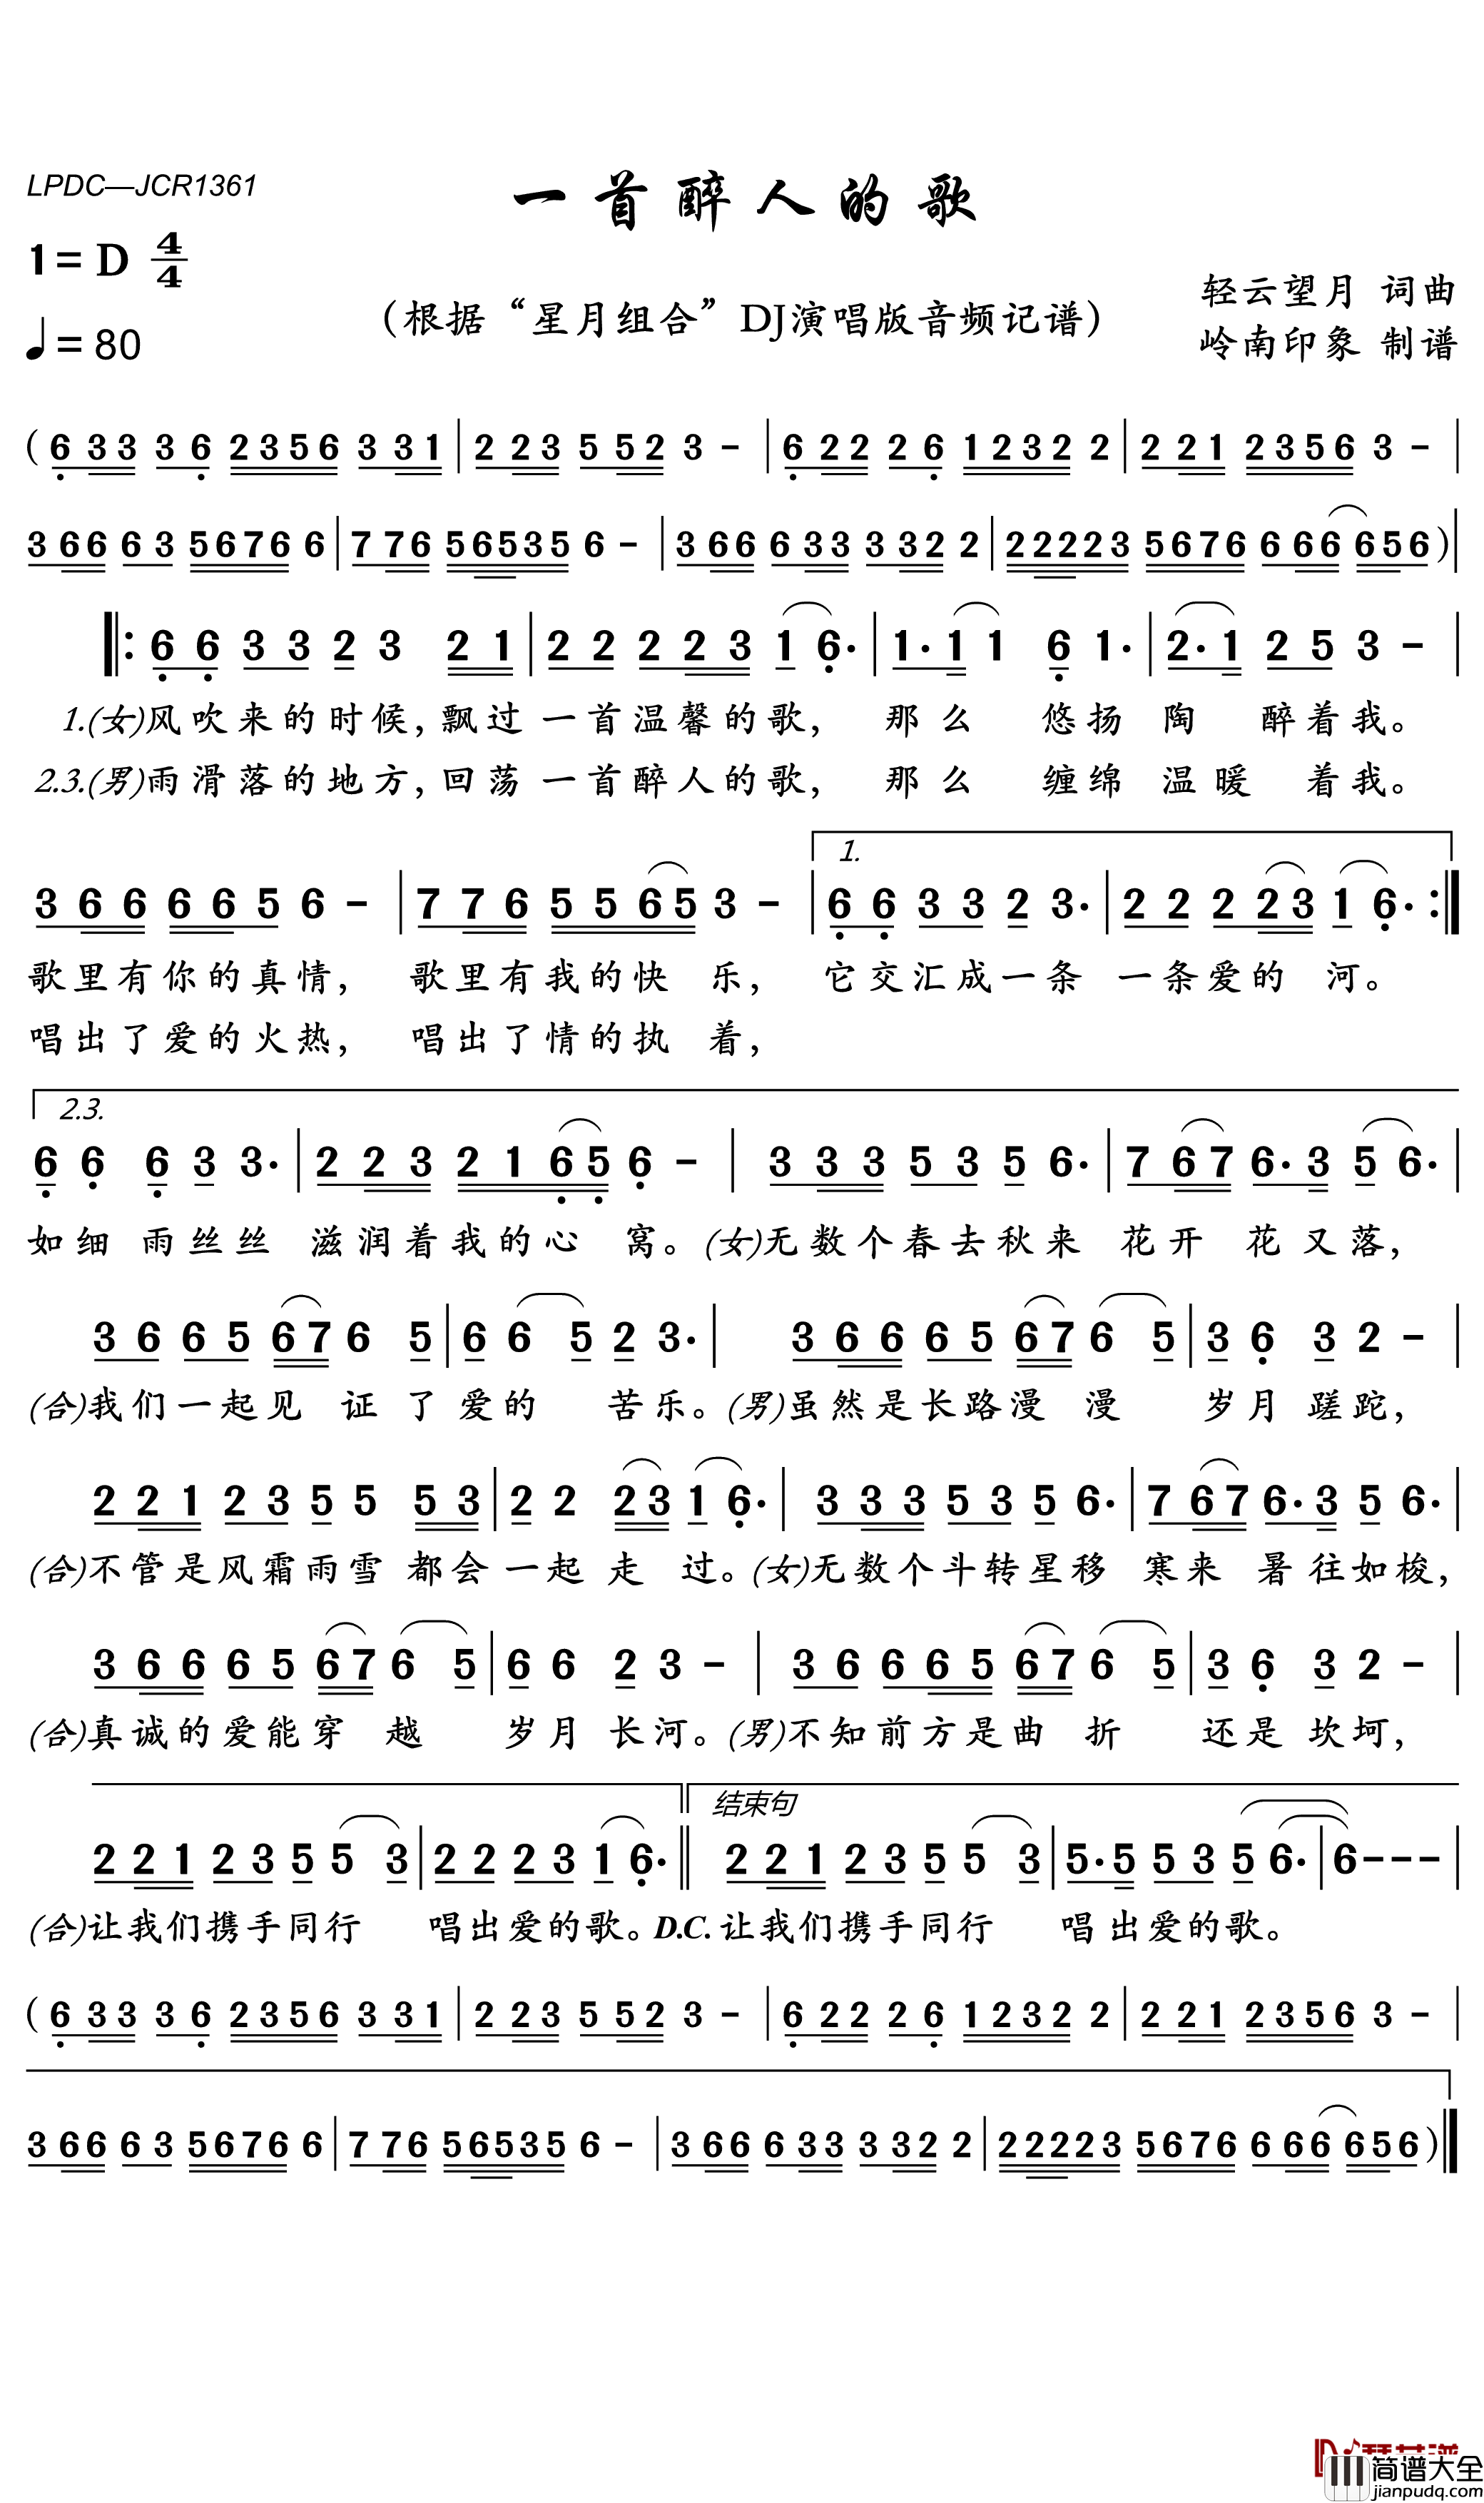 LPDC—JCR1361
一首醉人的歌
1= D 4/4
♩= 80
（根据“星月组合”DJ演唱版音频记谱）
轻云望月 词曲
岭南印象 制谱
( 6 3 3 3 6 2 3 5 6 3 3 1 | 2 2 3 5 5 2 3 - | 6 2 2 2 6 1 2 3 2 2 | 2 2 1 2 3 5 6 3 - |
3 6 6 6 3 5 6 7 6 6 | 7 7 6 5 6 5 3 5 6 - | 3 6 6 6 3 3 3 3 2 2 | 2 2 2 2 3 5 6 7 6 6 6 6 6 5 6 ) |
‖: 6 6 3 3 2 3 2 1 | 2 2 2 2 3 1 6· | 1· 1 1 6 1· | 2· 1 2 5 3 - |
1.(女)风吹来的时候，飘过一首温馨的歌， 那么 悠扬 陶 醉着我。
2.3.(男)雨滑落的地方，回荡一首醉人的歌， 那么 缠绵 温暖 着我。
3 6 6 6 6 5 6 - | 7 7 6 5 5 6 5 3 - | 1. 6 6 3 3 2 3· | 2 2 2 2 3 1 6· :‖
歌里有你的真情， 歌里有我的快 乐， 它交汇成一条 一条爱的 河。
唱出了爱的火热， 唱出了情的执 着，
2.3.
6 6 6 3 3· | 2 2 3 2 1 6 5 6 - | 3 3 3 5 3 5 6· | 7 6 7 6· 3 5 6· |
如细 雨丝丝 滋润着我的心 窝。(女)无数个春去秋来 花开 花又落，
3 6 6 5 6 7 6 5 | 6 6 5 2 3· | 3 6 6 6 5 6 7 6 5 | 3 6 3 2 - |
(合)我们一起见 证了爱的 苦乐。(男)虽然是长路漫 漫 岁月蹉跎，
2 2 1 2 3 5 5 5 3 | 2 2 2 3 1 6· | 3 3 3 5 3 5 6· | 7 6 7 6· 3 5 6· |
(合)不管是风霜雨雪 都会一起走 过。(女)无数个斗转星移 寒来 暑往如梭，
3 6 6 6 5 6 7 6 5 | 6 6 2 3 - | 3 6 6 6 5 6 7 6 5 | 3 6 3 2 - |
(合)真诚的爱能穿 越 岁月长河。(男)不知前方是曲 折 还是坎坷，
结束句
2 2 1 2 3 5 5 3 | 2 2 2 3 1 6· ‖ 2 2 1 2 3 5 5 3 | 5· 5 5 3 5 6· | 6 - - - |
(合)让我们携手同行 唱出爱的歌。D.C.让我们携手同行 唱出爱的歌。
( 6 3 3 3 6 2 3 5 6 3 3 1 | 2 2 3 5 5 2 3 - | 6 2 2 2 6 1 2 3 2 2 | 2 2 1 2 3 5 6 3 - |
3 6 6 6 3 5 6 7 6 6 | 7 7 6 5 6 5 3 5 6 - | 3 6 6 6 3 3 3 3 2 2 | 2 2 2 2 3 5 6 7 6 6 6 6 6 5 6 ) ‖
简谱大全
jianpudq.com